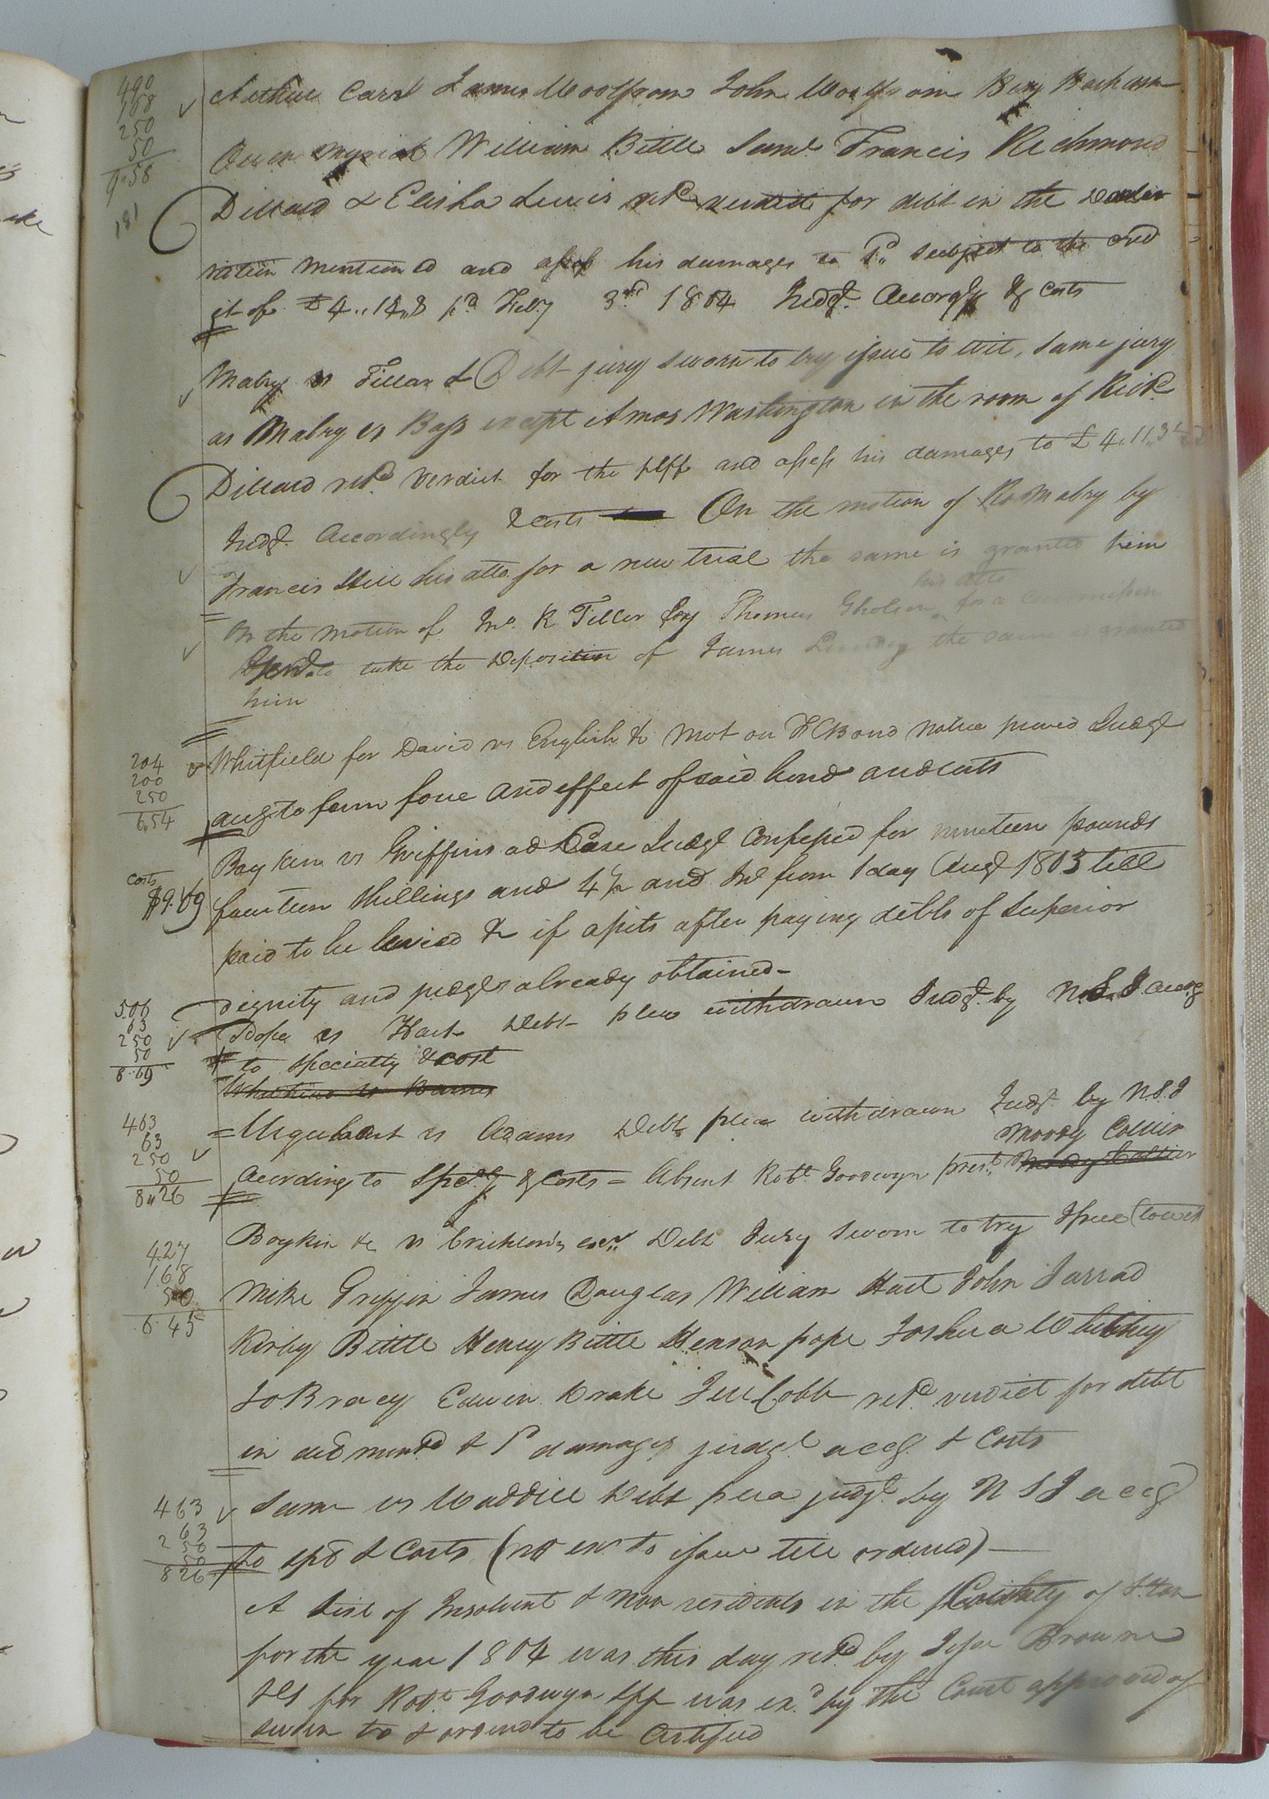 490
168
250
50
9.58
181
Carrl James Woolfram John Woolfram Benj
William Bittle Saml Francis Richmond
Dillard & Elisha Lewis retd verdict for debt in the
mentioned and assess his damages to 1d. subject to the cred
it of £4..14..8 pd Feby 3rd 1804 Judgt. Accordgly & costs
Mabry vs Tillar & Debt jury sworn to try issue to wit, same jury
as Mabry vs Bass except Amos Washington in the room of Richd
Dillard retd. verdict for the plff and assess his damages to £4.11.3
Judgt. Accordingly & costs On the motion of Mabry by
Francis Hill his atto. for a new trial the same is granted him
On the motion of Jno. R Tiller by Thomas Gholson his atto for a Commission
to take the Deposition of James the same is granted
him
204
200
250
6.54
Whitfield for David vs English & Mot on F C Bond notice proved Judgt
accg to form force and effect of said bond and costs
Boykin vs Griffins ad Case Judgt Confessed for nineteen pounds
Costs
$9.69
fourteen shillings and 4½ and Int from 1 day Augt 1803 till
paid to be levied & if assits after paying debts of superior
dignity and judgts already obtained-
506
63
250
50
8.69
Pope vs Hart Debt plea withdrawn Judgt. by N.S.I. accg
to specialty & cost
463
63
250
50
8..26
Urquhart vs Adams Debt plea withdrawn Judgt. by N.S.I
Moody Collier
According to Spclty & Costs = Absent Robt. Goodwyn prest. Moody Collier
427
168
50
6.45
Boykin & vs Crichlon's exr. Debt Jury sworn to try Issue (to wit
Mike Griffin James Douglas William Hart John Jarrad
Kirby Bittle Henry Bittle Henson pope Joshua Whitney
Bracy Edwin Drake Jesse Cobb retd. verdict for debt
in decd mentd & 1d damages judgt accg. & Costs
463
263
50
50
826
Same vs Waddill Debt plea judgt. by N S I accg
to spts & Costs (not exn to issue till ordered)—
A List of Insolvent & Non residents in the County of
for the year 1804 was this day retd. by Jesse Browne
DS for Robt. Goodwyn Shff was exd. by the Court approved of
sworn to & ordered to be Certified